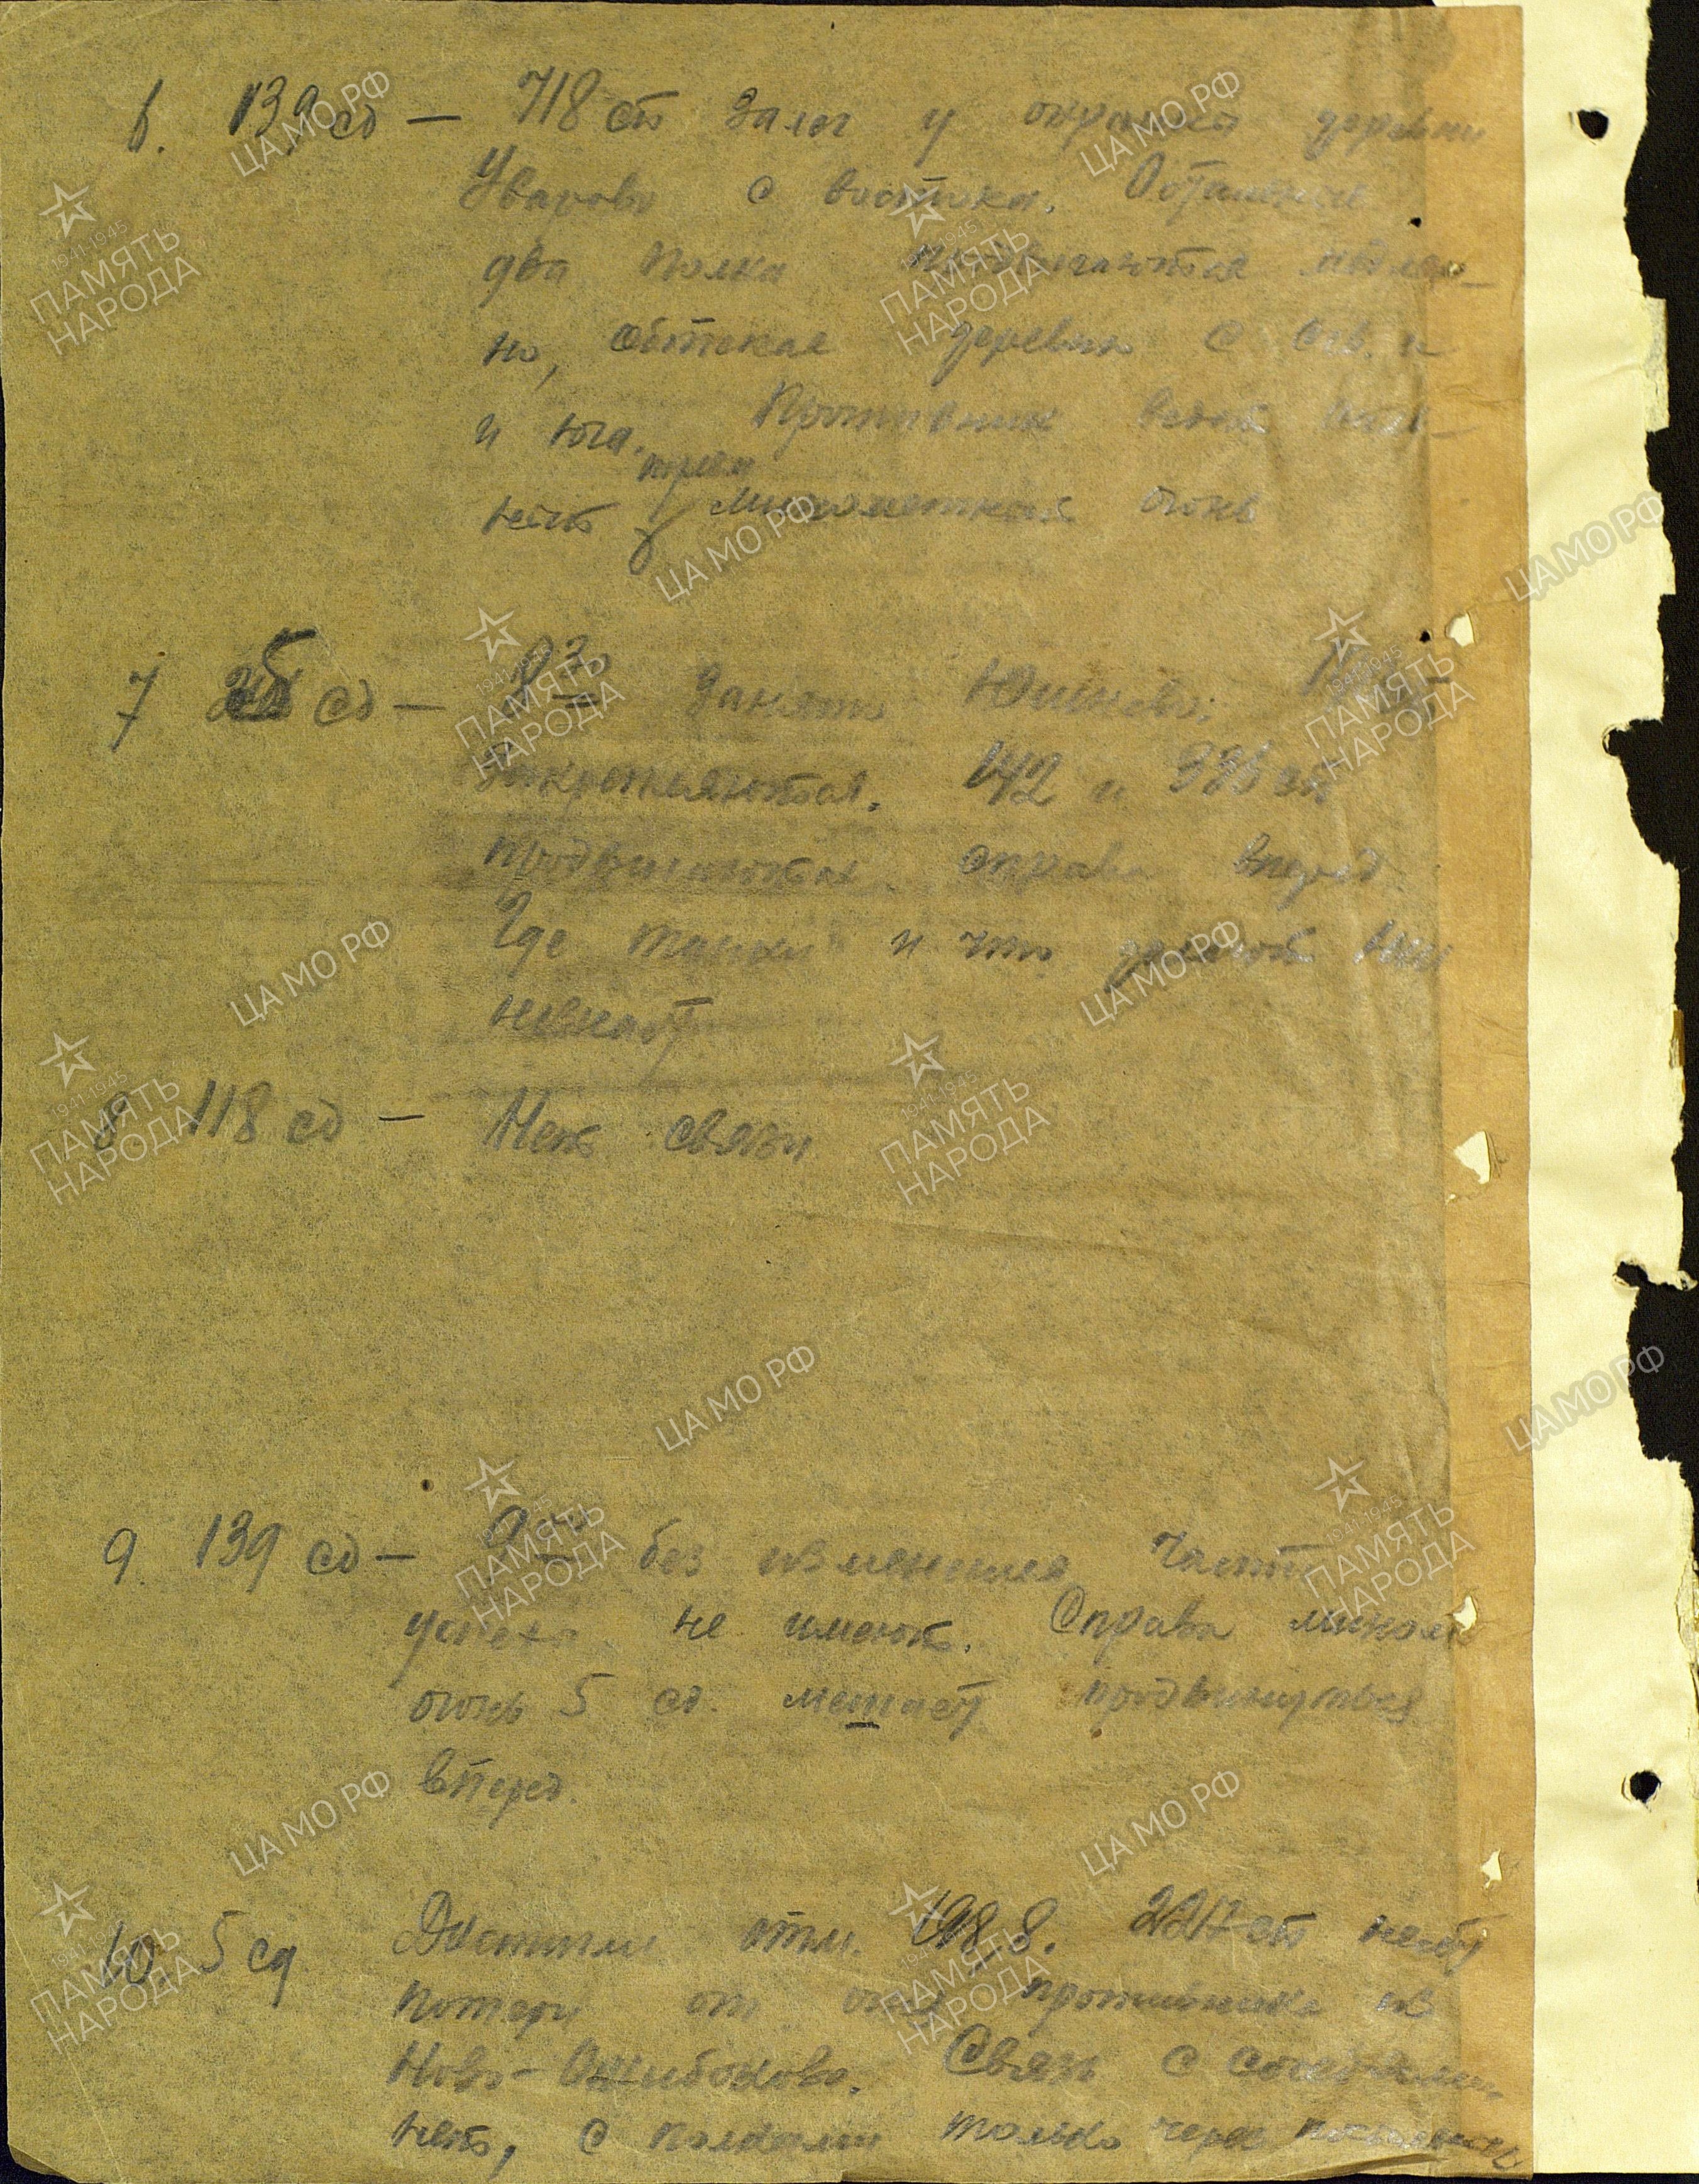 6. 139 сд — 718 сп залег у окраины деревни
Уварово с востока. Остальные
два полка продвигаются медлен-
но, обтекая деревню с сев. и
и юга. Противник ведет
пулем
минометный огонь
7 сд — 9 30 занято Юшково.
Закрепляются. 142 и 336 сп
продвигаются справа вперед
Где танки и что делают они
незнают
8 118 сд — Нет связи
9. 139 сд — 9 без изменения части
успеха не имеют. Справа миномет
огонь 5 сд. мешает продвинуться
вперед.
10. 5 сд Достигли отм. 198,8. сп несет
потери от огня противника из
Ново-Ошибоково. Связь с соседями
нет, с полками только через посыльных
ПАМЯТЬ НАРОДА
1941 1945
ЦА МО РФ